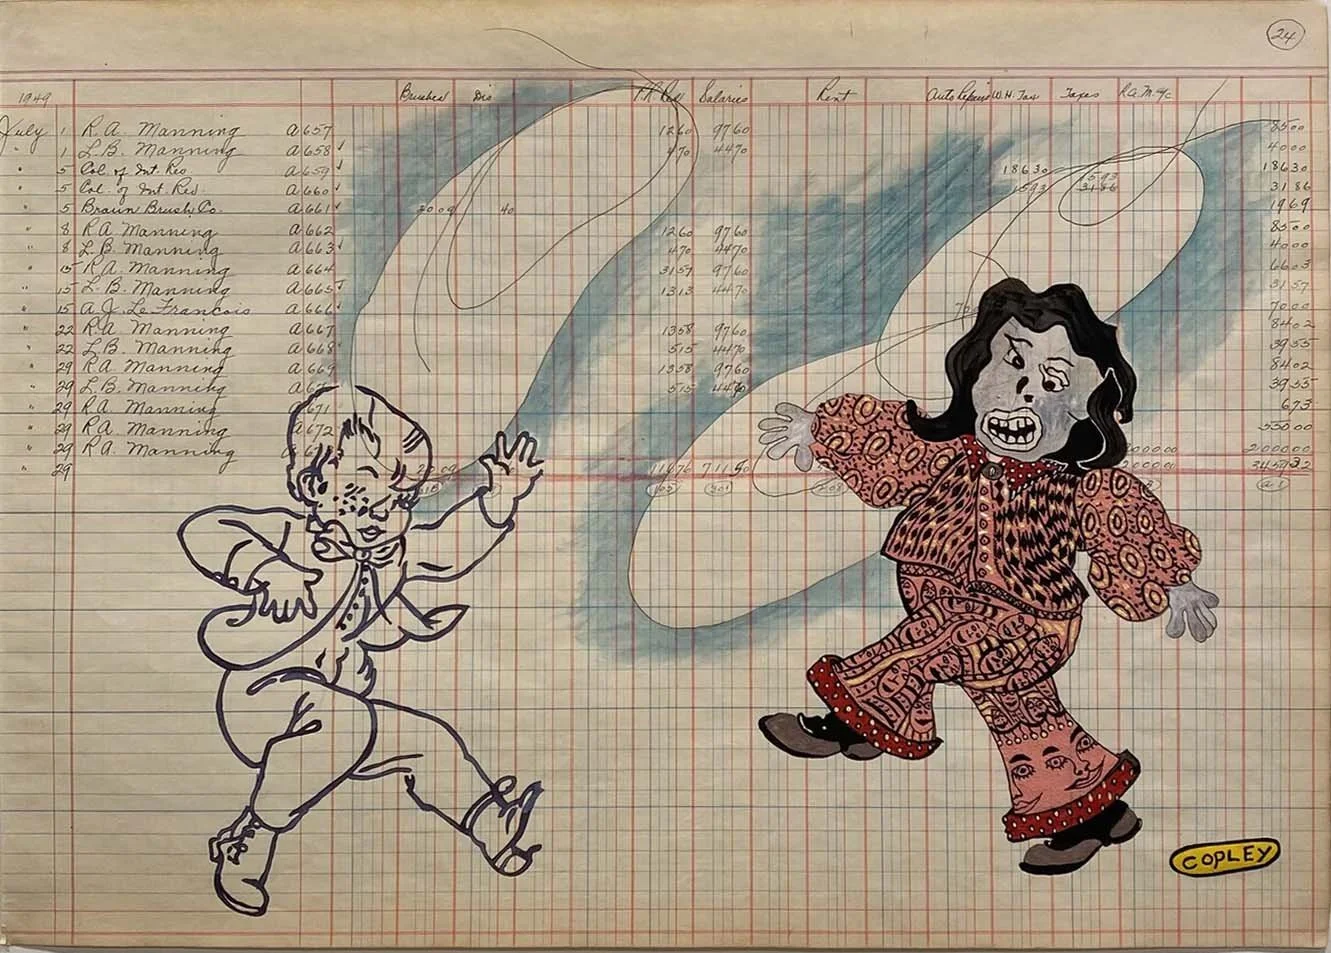 24
1949 Brushes Dis P.R. Res Salaries Rent Auto Repairs W.H. Tax Taxes R.A.M. %c
July 1 R.A. Manning a657 1260 9760 8500
" 1 L.B. Manning a658 ✓ 470 4470 4000
" 5 Col. of Int. Res a659 ✓ 18630 1593 18630
" 5 Col. of Int. Res. a660 ✓ 1593 3186 3186
" 5 Braun Brush Co. a661 ✓ 2009 40 1969
" 8 R.A. Manning a662 1260 9760 8500
" 8 L.B. Manning a663 ✓ 470 4470 4000
" 15 R.A. Manning a664 3157 9760 6603
" 15 L.B. Manning a665 ✓ 1313 4470 3157
" 15 A.J. Le Francois a666 ✓ 7000
" 22 R.A. Manning a667 1358 9760 8402
" 22 L.B. Manning a668 515 4470 3955
" 29 R.A. Manning a669 1358 9760 8402
" 29 L.B. Manning 515 4470 3955
" 29 R.A. Manning a671 673
" 29 R.A. Manning a672 55000
" 29 R.A. Manning 200000
" 29 2009 11676 71150
COPLEY